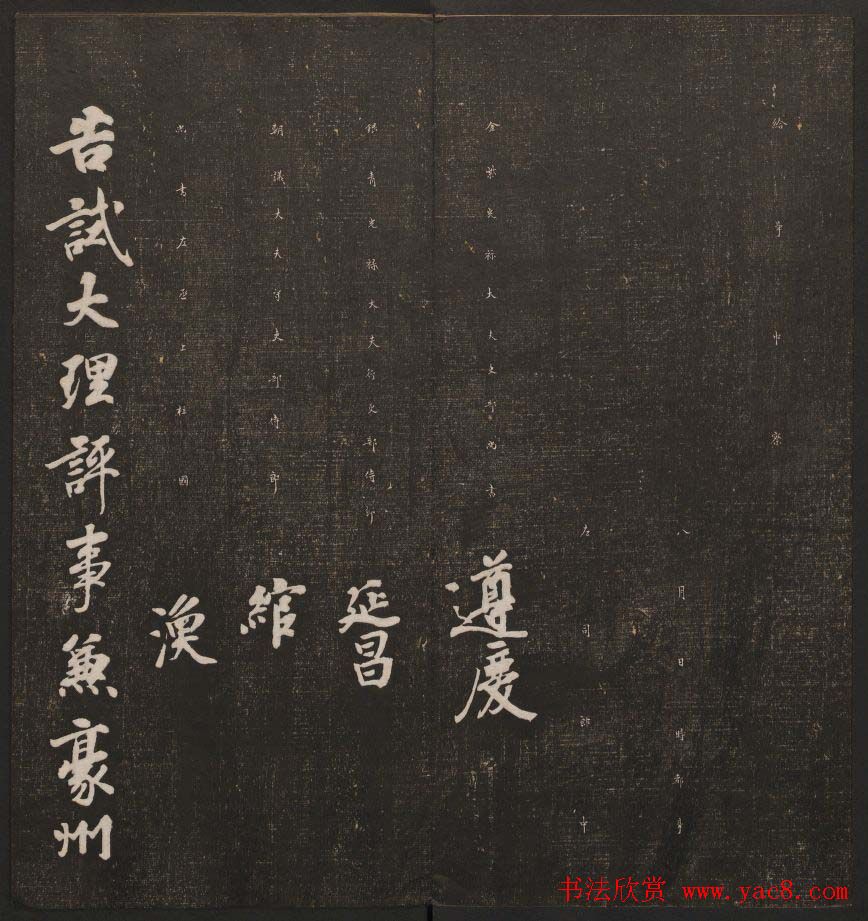 給事中察
八月日時都事
左司郎中
金紫光祿大夫吏部尚書遵慶
銀青光祿大夫行吏部侍郎延昌
朝議大夫守吏部侍郎綰
尚書左丞上柱國渙
告試大理評事兼豪州
书法欣赏 www.yac8.com